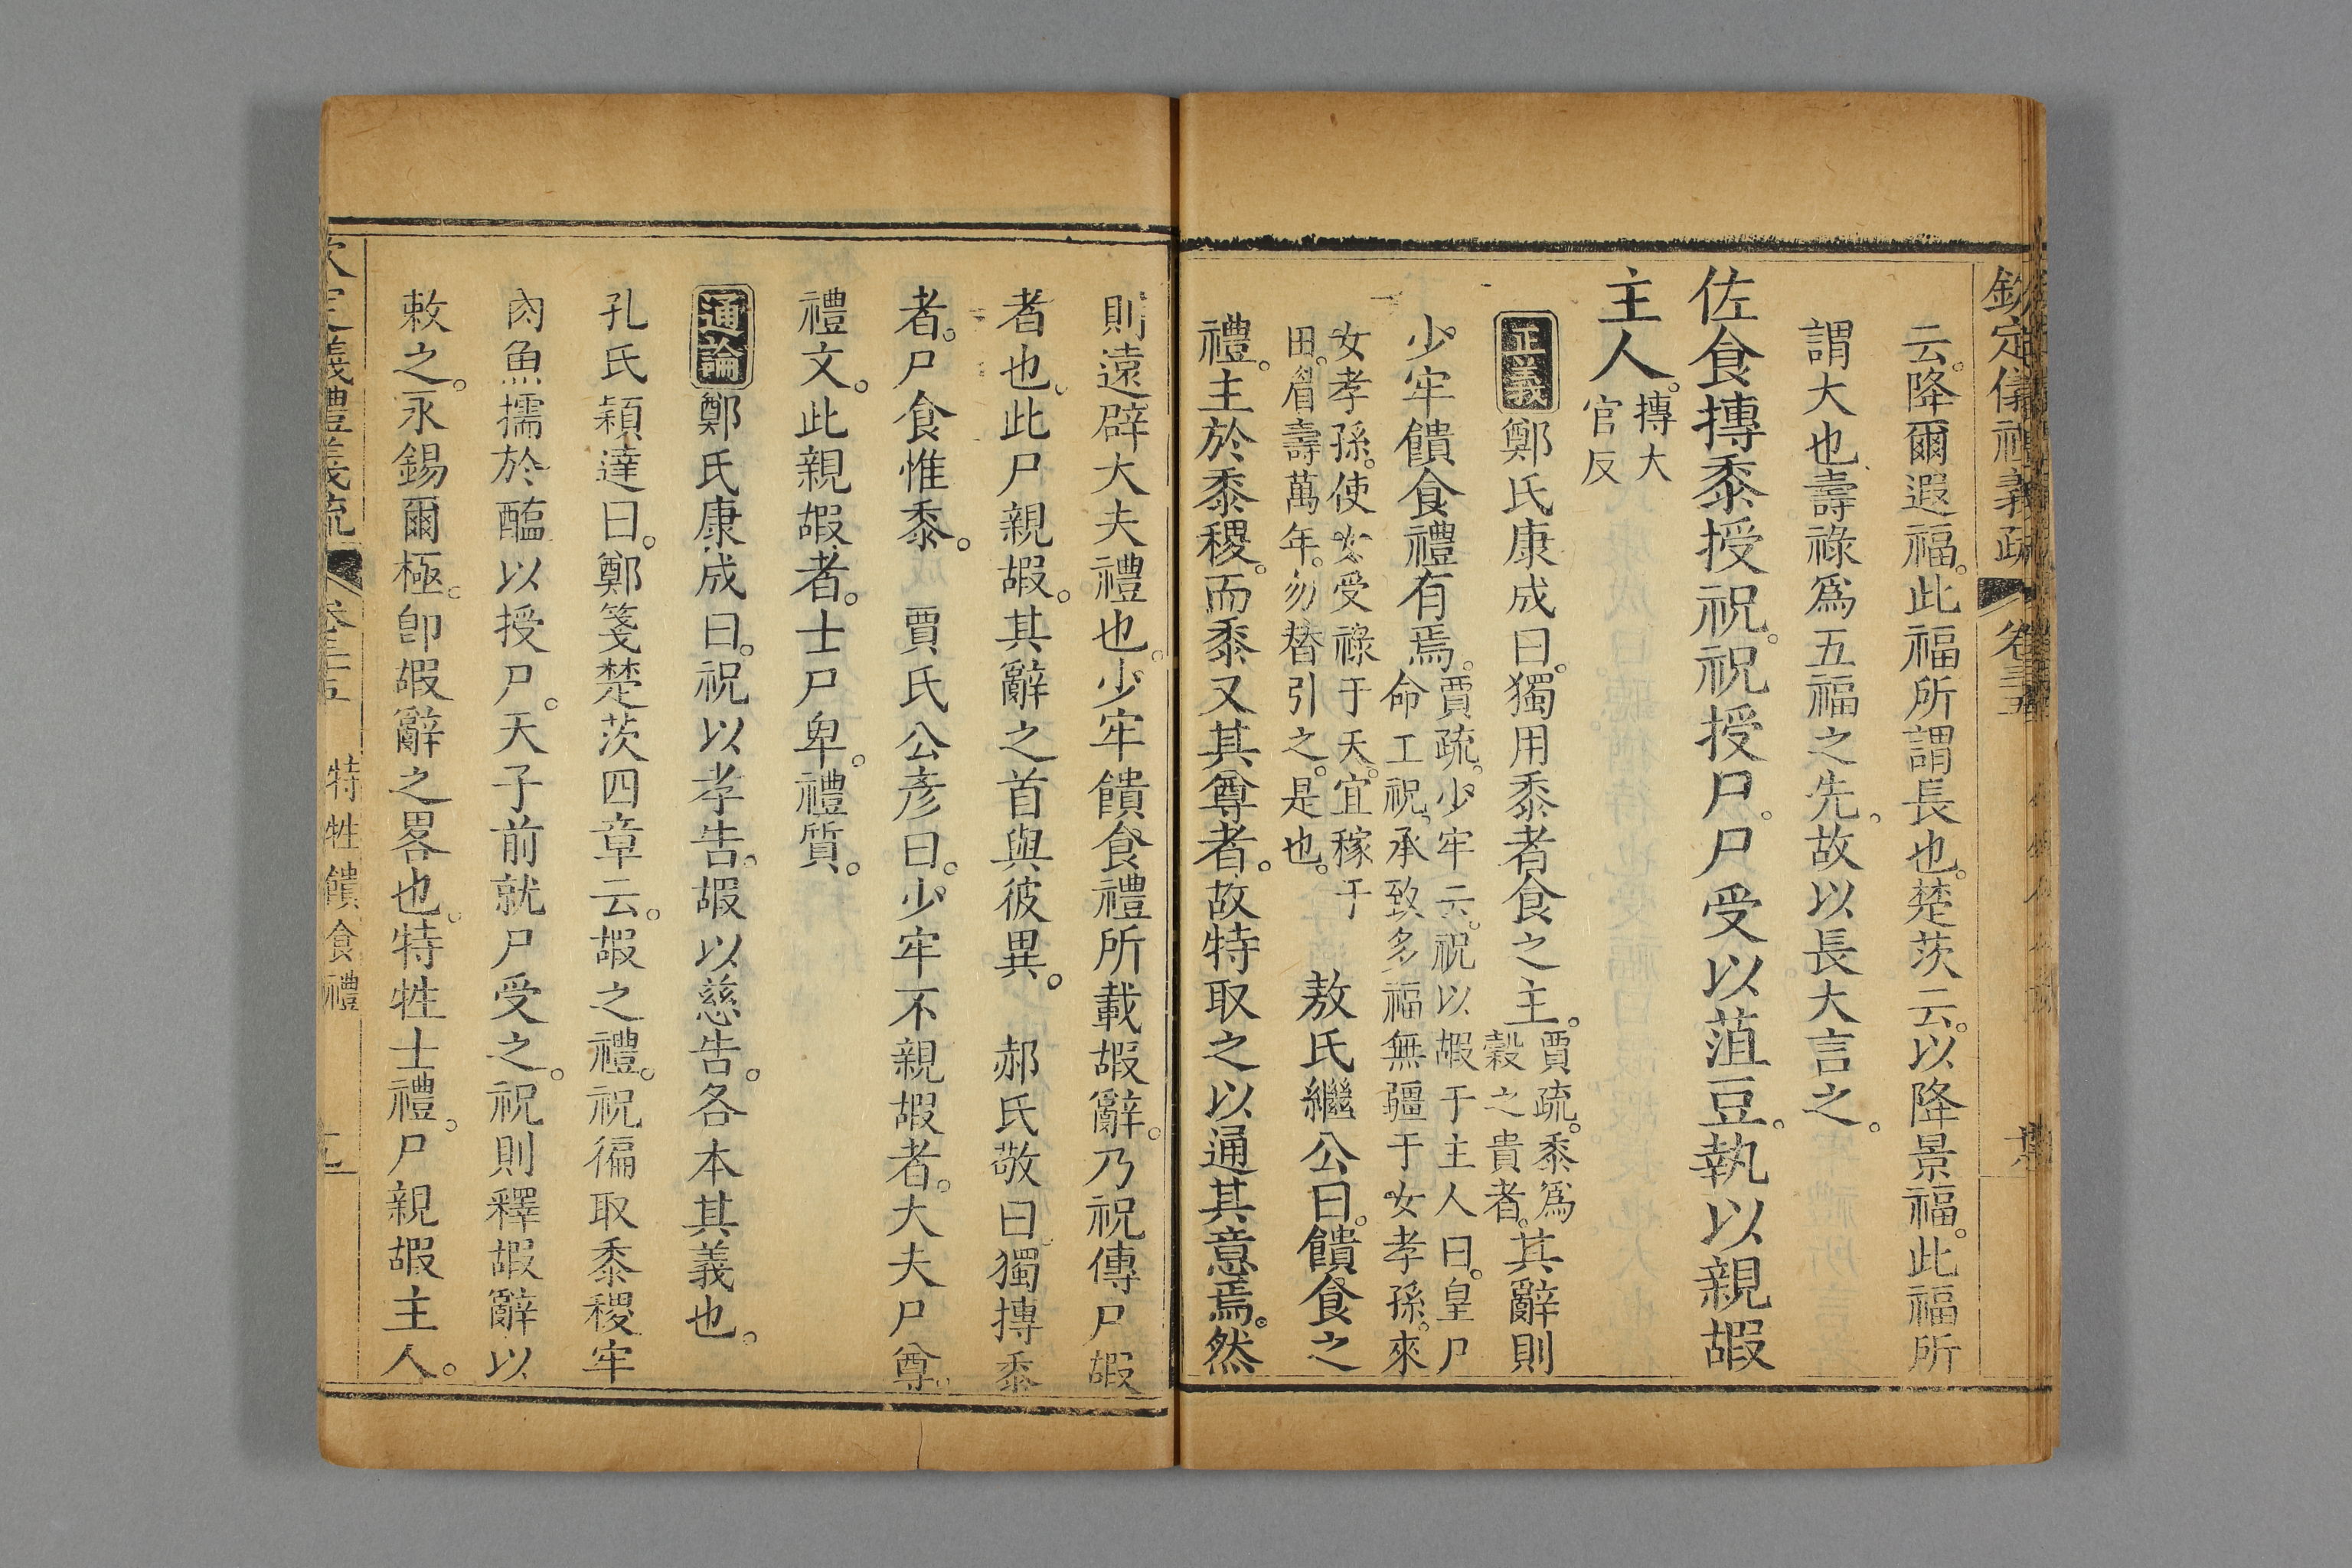 欽定儀禮義疏 卷三十五
云。降爾遐福。此福所謂長也。楚茨云。以降景福。此福所
謂大也。壽祿爲五福之先。故以長大言之。
佐食摶黍授祝。祝授尸。尸受以菹豆。執以親嘏
主人。摶大
官反
正義鄭氏康成曰。獨用黍者。食之主。賈疏。黍爲
穀之貴者。其辭則
少牢饋食禮有焉。賈疏。少牢云。祝以嘏于主人曰。皇尸
命工祝。承致多福無疆于女孝孫。來
女孝孫。使女受祿于天。宜稼于
田。眉壽萬年。勿替引之。是也。 敖氏繼公曰。饋食之
禮。主於黍稷。而黍又其尊者。故特取之以通其意焉。然
則遠辟大夫禮也。少牢饋食禮所載嘏辭。乃祝傳尸嘏
者也。此尸親嘏。其辭之首與彼異。 郝氏敬曰。獨摶黍
者。尸食惟黍。 賈氏公彥曰。少牢不親嘏者。大夫尸尊。
禮文。此親嘏者。士尸卑。禮質。
通論鄭氏康成曰。祝以孝告。嘏以慈告。各本其義也。
孔氏穎達曰。鄭箋楚茨四章云。嘏之禮。祝徧取黍稷牢
肉魚擩於醢以授尸。天子前就尸受之。祝則釋嘏辭以
敕之。永錫爾極。卽嘏辭之畧也。特牲士禮。尸親嘏主人。
欽定義禮義疏 卷三十五 特牲饋食禮